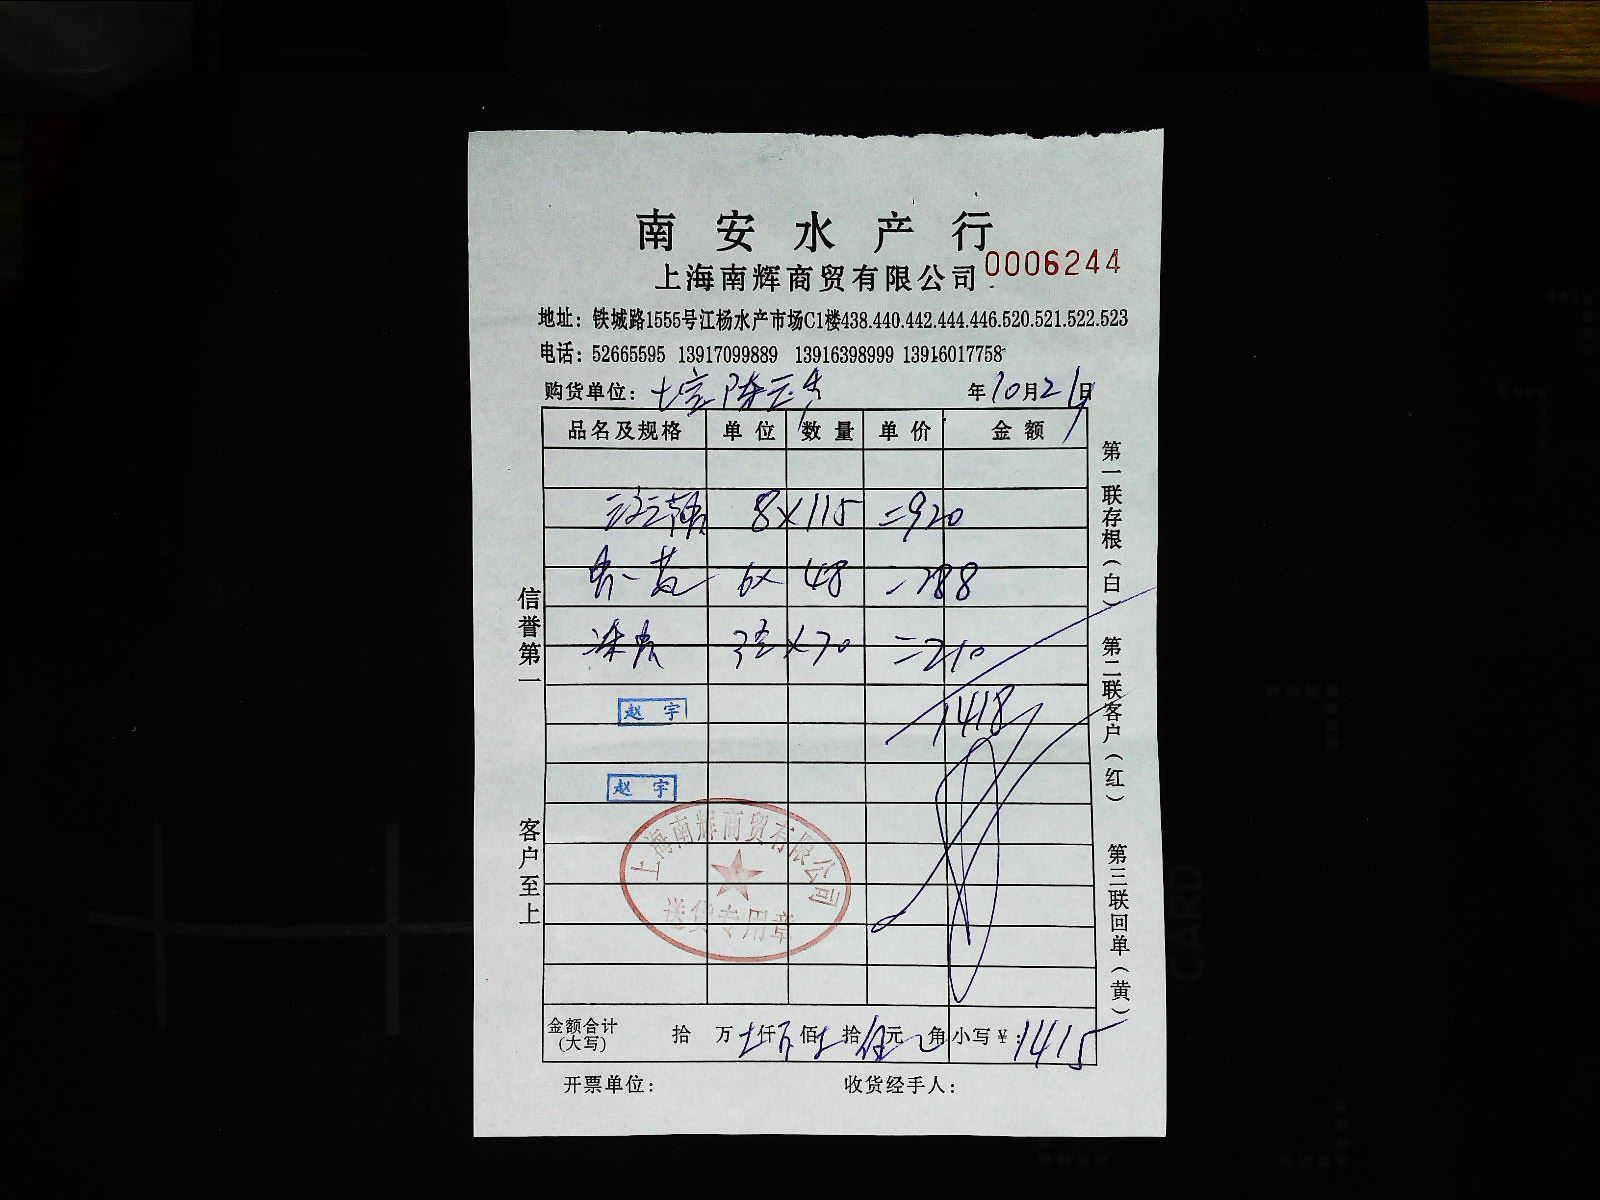 南安水产行
上海南辉商贸有限公司 0006244
地址：铁城路1555号江杨水产市场C1楼438.440.442.444.446.520.521.522.523
电话：52665595 13917099889 13916398999 13916017758
购货单位： 年10月21日
品名及规格 单位 数量 单价 金额
8×115=920
6×48=288
×70=210
1418
赵宇
赵宇
上海南辉商贸有限公司
送货专用章
金额合计(大写) 拾 万 仟 佰 拾 元 角 小写￥：1415
开票单位： 收货经手人：
信誉第一
客户至上
第一联存根（白）
第二联客户（红）
第三联回单（黄）